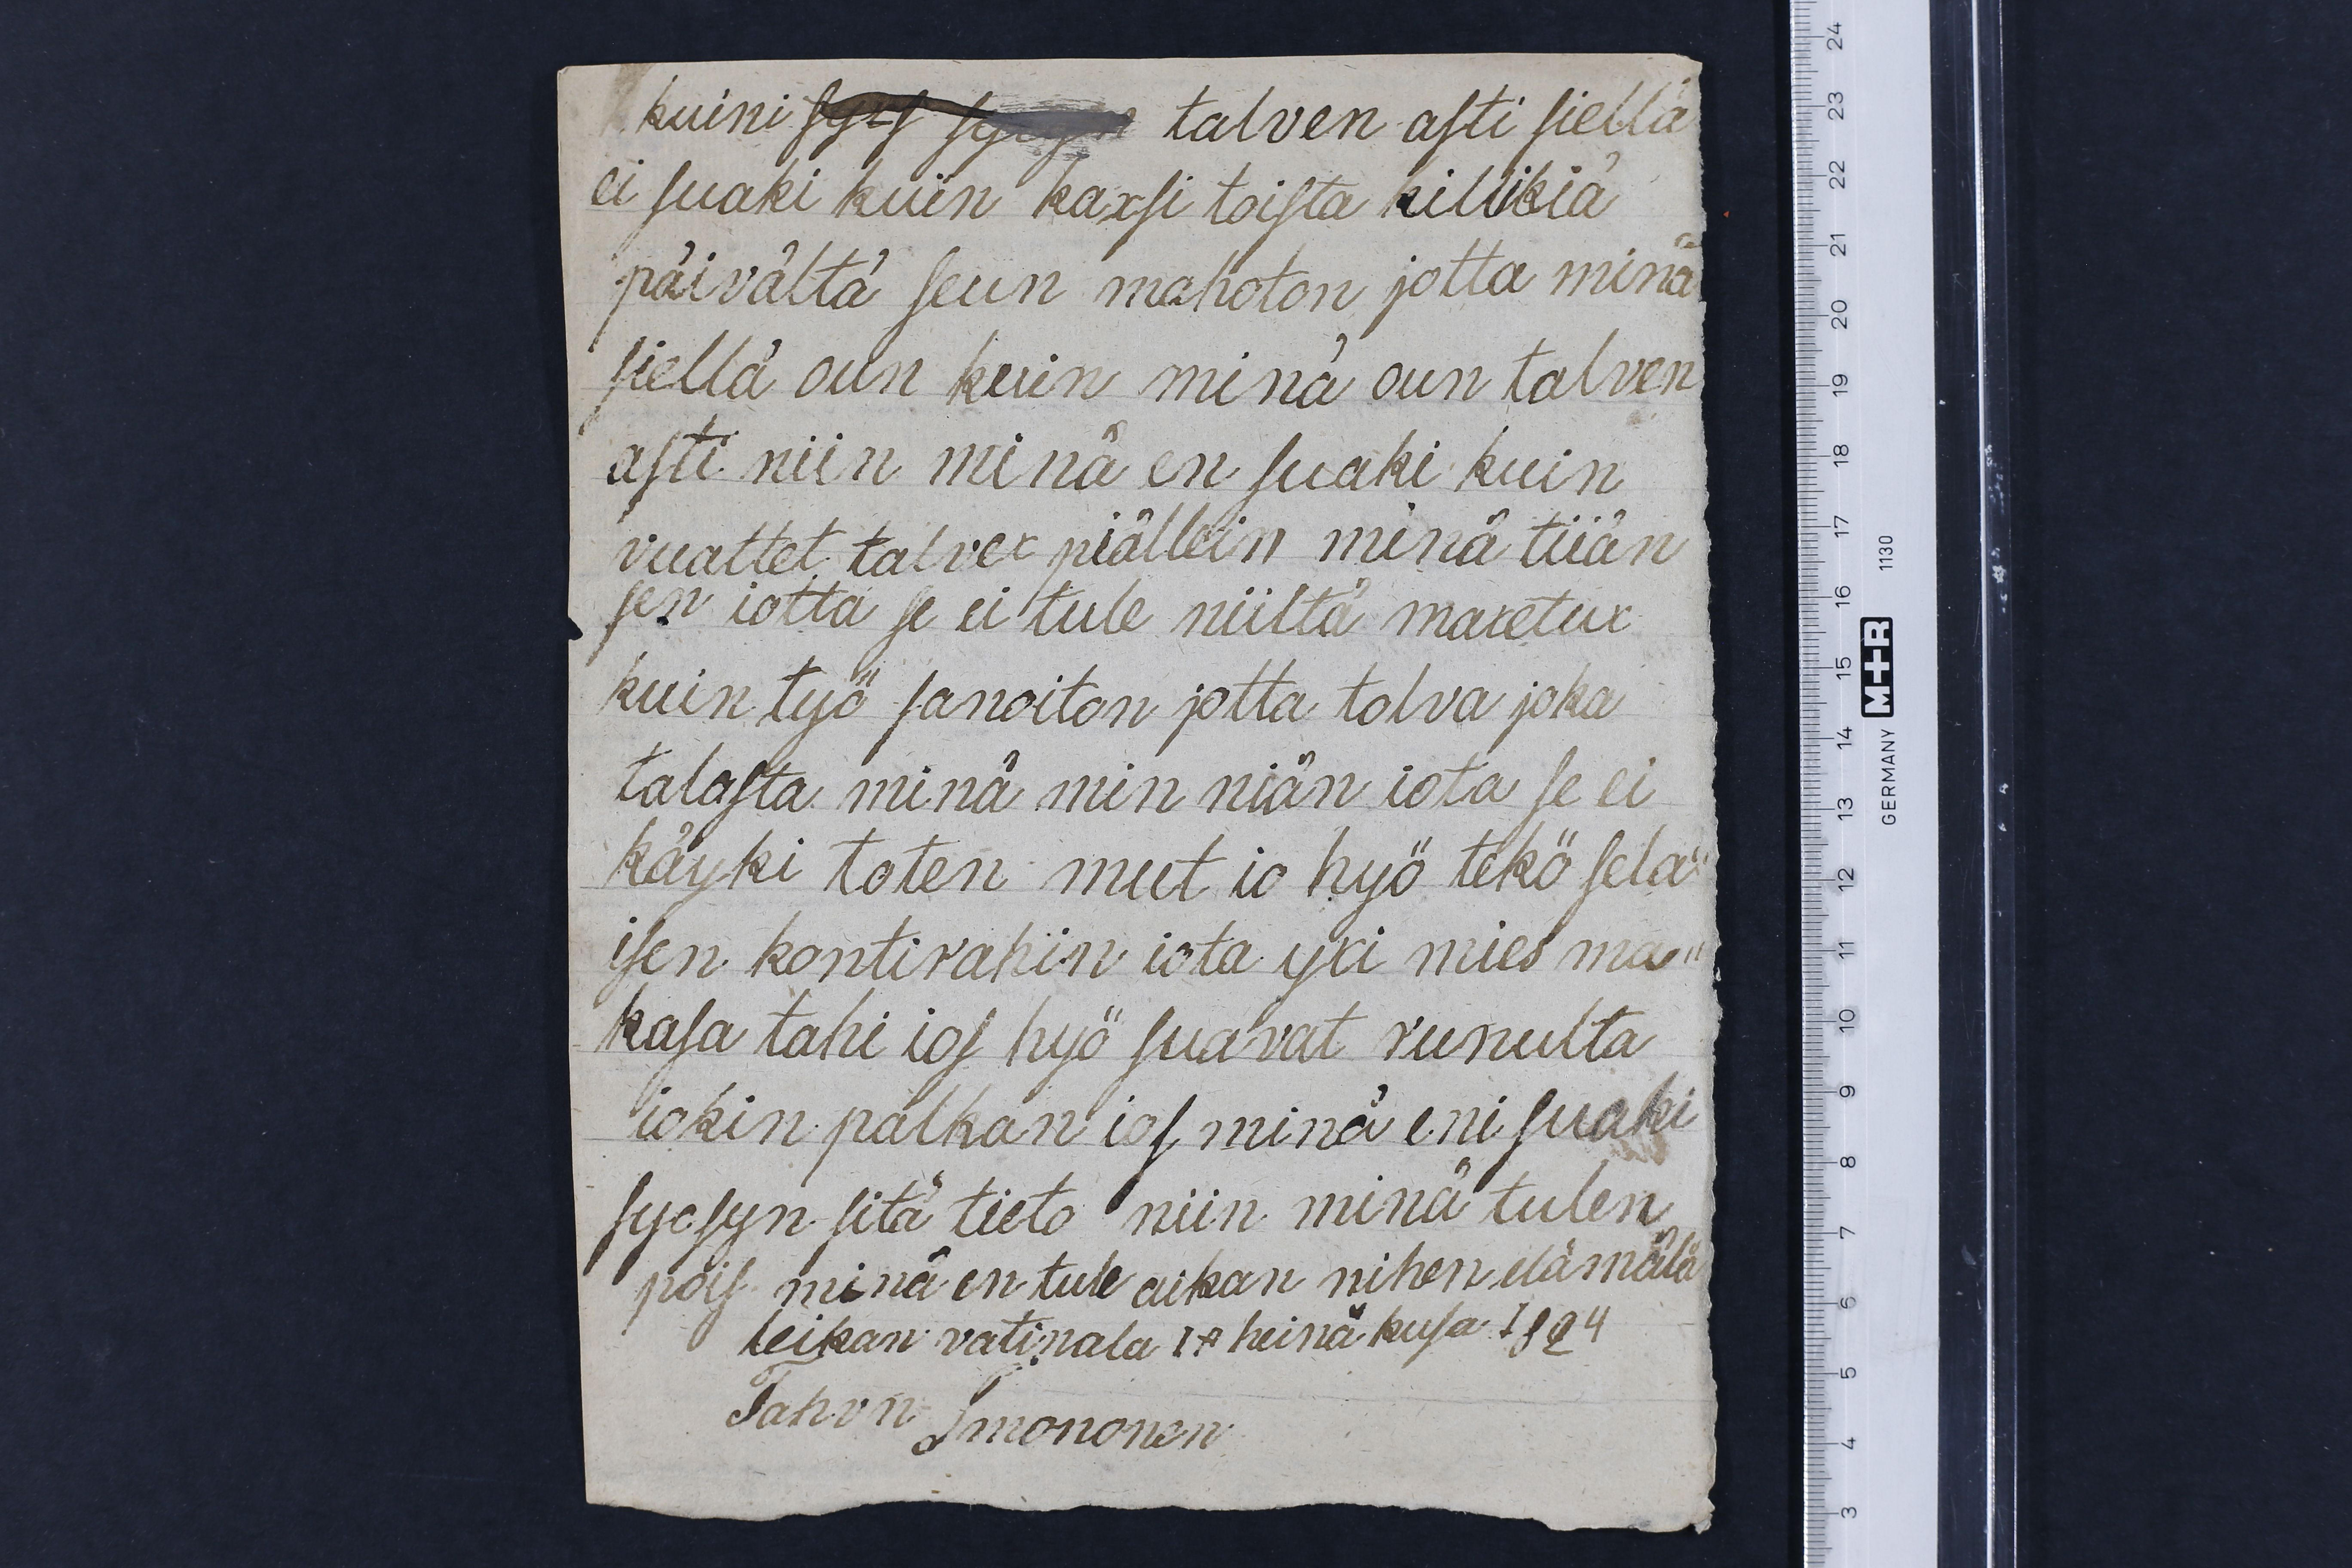 kuini talven asti siellä
ei suaki kuin kaxsi toista killikiä
päivältä seun mahoton jotta minä
siellä oun kuin minä oun talven
asti niin minä en suaki kuin
vuattet talvex piällein minä tiiän
sen iotta se ei tule niiltä maxetux
kuin työ sanoiton jotta tolva joka
talasta minä min niän iota se ei
käyki toten mut io hyö tekö sela"
isen kontirahin iota yxi mies ma"
kasa tahi ios hyö suavat runulta
iokin palkan ios minä eni suaki
sycsyn sitä tieto niin minä tulen
pois minä en tule aikan nihen elämälä
leikan vatinala heinä kusa
Tahvn Imononen
24
23
22
21
20
19
18
17
16
15
14
13
12
11
10
9
8
7
6
5
4
3
GERMANY M+R 1130